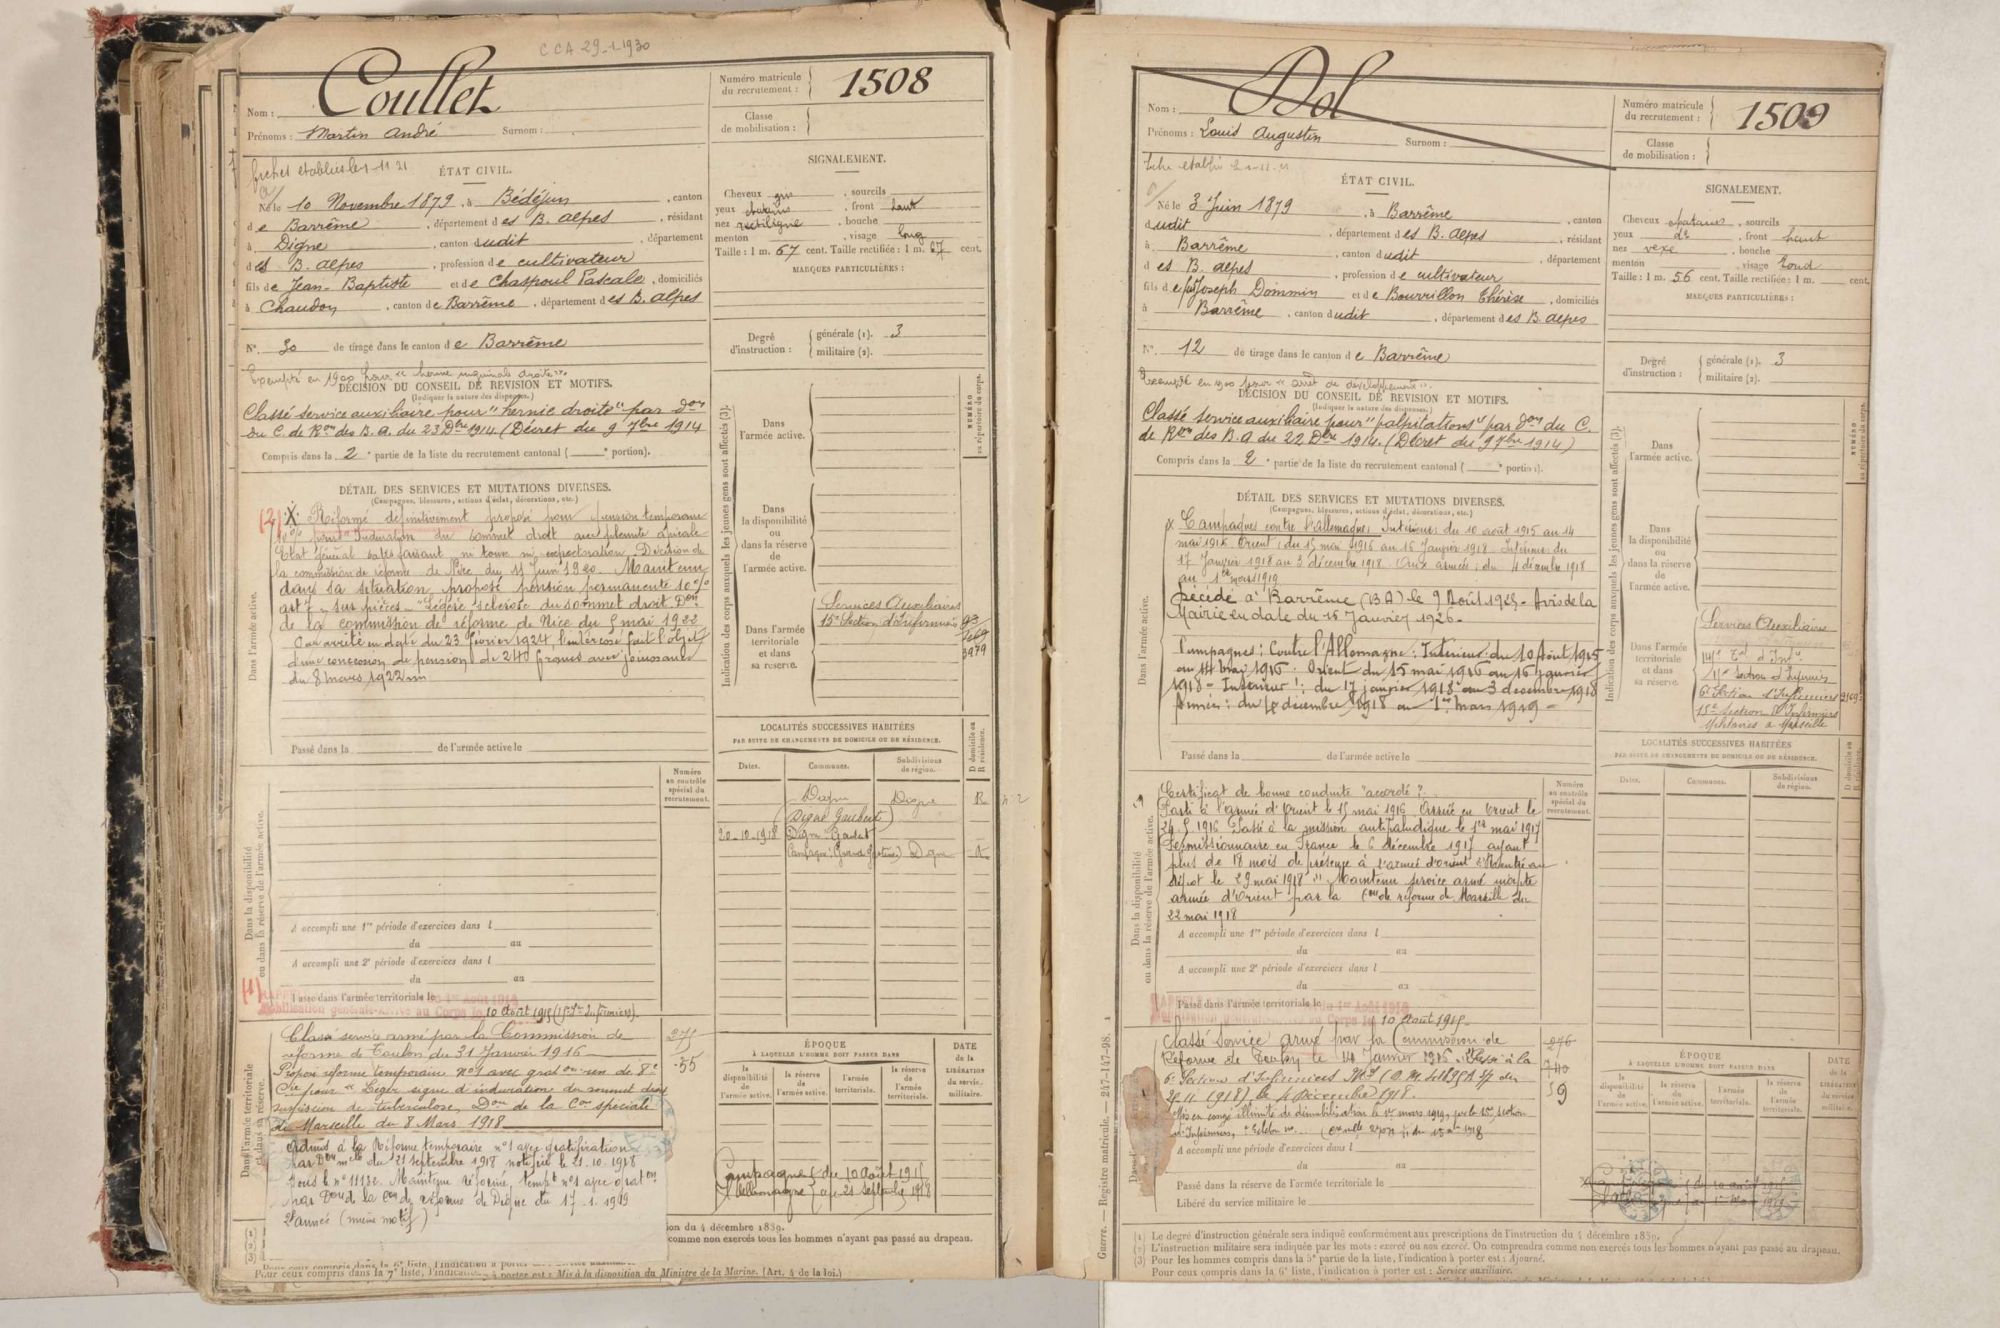 C CA 29-1-1930
Nom : Coullet
Prénoms : Martin André Surnom :
Numéro matricule du recrutement : 1508
Classe de mobilisation :
fiches établies le 1-11 21
ÉTAT CIVIL.
Né le 10 Novembre 1879, à Bédéjun, canton
de Barrême, département des B. Alpes, résidant
à Digne, canton dudit, département
des B. Alpes, profession de cultivateur
fils de Jean-Baptiste et de Chaspoul Pascale, domiciliés
à Chaudon, canton de Barrême, département des B. Alpes
N° 30 de tirage dans le canton de Barrême
SIGNALEMENT.
Cheveux gris, sourcils
yeux chatains, front haut
nez rectiligne, bouche
menton, visage long
Taille : 1 m. 67 cent. Taille rectifiée : 1 m. 67 cent.
MARQUES PARTICULIÈRES :
Degré d'instruction : générale (1). 3
militaire (2).
Exempté en 1900 pour "hernie inguinale droite".
DÉCISION DU CONSEIL DE REVISION ET MOTIFS.
(Indiquer la nature des dispenses.)
Classé service auxiliaire pour "hernie droite" par don
du C. de Ron des B.A. du 23 Dbre 1914 (Décret du 9 7bre 1914
Compris dans la 2e partie de la liste du recrutement cantonal ( e portion).
DÉTAIL DES SERVICES ET MUTATIONS DIVERSES.
(Campagnes, blessures, actions d'éclat, décorations, etc.)
(2) X Réformé définitivement proposé pour pension temporaire
10 % pour "Induration du sommet droit avec
Etat général satisfaisant ni toux ni expectoration. Décision de
la commission de réforme de Nice du 11 Juin 1920. Maintenu
dans sa situation, proposé pension permanente 10 %
sur pièces - "Légère sclérose du sommet droit Don
de la commission de réforme de Nice du 5 mai 1922
Par arrêté en date du 23 février 1924, l'intéressé fait l'objet
d'une concession de pension de 240 francs avec jouissance
du 8 mars 1922
Dans l'armée active.
Passé dans la de l'armée active le
Indication des corps auxquels les jeunes gens sont affectés (3).
NUMÉRO au répertoire du corps.
Dans l'armée active.
Dans la disponibilité ou dans la réserve de l'armée active.
Dans l'armée territoriale et dans sa réserve.
Services Auxiliaires
15e Section d'Infirmiers
3979
LOCALITÉS SUCCESSIVES HABITÉES
PAR SUITE DE CHANGEMENTS DE DOMICILE OU DE RÉSIDENCE.
D domicile ou R résidence.
Dates. Communes. Subdivisions de région.
Digne Digne R
(Digne Gaubert)
20-10-1918 Digne Gaubert
Campagne Digne
Numéro au contrôle spécial du recrutement.
Dans la disponibilité ou dans la réserve de l'armée active.
A accompli une 1re période d'exercices dans l
du au
A accompli une 2e période d'exercices dans l
du au
(1)
Passé dans l'armée territoriale le
10 Août 1915 (15e Son Infirmiers).
Classé service armé par la Commission de 275
réforme de Toulon du 31 Janvier 1916 55
Proposé réforme temporaire n°1 avec graton un de 8e
Cie pour "Léger signe d'induration du sommet droit
suspicion de tuberculose. Don de la Con spéciale
de Marseille du 8 Mars 1918
Admis à la Réforme temporaire n°1 avec gratification
par Don mlle du 21 septembre 1918 notifiée le 21.10.1918
sous le n° 11132. Maintenu réformé, tempre n°1 avec graton
par Don de la Con de réforme de Digne du 17-1-1919
2e année (même motif)
Dans l'armée territoriale et dans sa réserve.
ÉPOQUE
À LAQUELLE L'HOMME DOIT PASSER DANS
DATE de la LIBÉRATION du service militaire.
la disponibilité de l'armée active. la réserve de l'armée active. l'armée territoriale. la réserve de l'armée territoriale.
Campagne du 10 Août 1915
Allemagne au 21 Septbre 1918
(1)
(2)
(3)
ion du 4 décembre 1889.
comme non exercés tous les hommes n'ayant pas passé au drapeau.
Pour ceux compris dans la 7e liste, l'indication à porter est : Mis à la disposition du Ministre de la Marine. (Art. 4 de la loi.)
Nom : Dol
Prénoms : Louis Augustin Surnom :
Numéro matricule du recrutement : 1509
Classe de mobilisation :
ÉTAT CIVIL.
Né le 3 Juin 1879, à Barrême, canton
dudit, département des B. Alpes, résidant
à Barrême, canton dudit, département
des B. Alpes, profession de cultivateur
fils de Joseph Dommin et de Bourrillon Thérèse, domiciliés
à Barrême, canton dudit, département des B. Alpes
N° 12 de tirage dans le canton de Barrême
SIGNALEMENT.
Cheveux chatains, sourcils
yeux do, front haut
nez vexe, bouche
menton, visage rond
Taille : 1 m. 56 cent. Taille rectifiée : 1 m. cent.
MARQUES PARTICULIÈRES :
Degré d'instruction : générale (1). 3
militaire (2).
Exempté en 1900 pour "arrêt de développement".
DÉCISION DU CONSEIL DE REVISION ET MOTIFS.
(Indiquer la nature des dispenses.)
Classé service auxiliaire pour "palpitations" par don du C.
de Ron des B.A du 22 Dbre 1914. (Décret du 9 7bre 1914)
Compris dans la 2e partie de la liste du recrutement cantonal ( e portion).
DÉTAIL DES SERVICES ET MUTATIONS DIVERSES.
(Campagnes, blessures, actions d'éclat, décorations, etc.)
x Campagnes contre l'Allemagne: Intérieur: du 10 août 1915 au 14
mai 1916. Orient: du 15 mai 1916 au 16 Janvier 1918. Intérieur: du
17 Janvier 1918 au 3 décembre 1918. Aux armées: du 4 décembre 1918
au 1er mars 1919
Décédé à Barrême (BA) le 9 Août 1925 - Avis de la
Mairie en date du 15 Janvier 1926 -
Campagnes: Contre l'Allemagne: Intérieur du 10 Août 1915
au 14 mai 1916. Orient du 15 mai 1916 au 16 janvier
1918 - Intérieur: du 17 janvier 1918 au 3 décembre 1918
Armées: du 4 décembre 1918 au 1er mars 1919 -
Dans l'armée active.
Passé dans la de l'armée active le
Indication des corps auxquels les jeunes gens sont affectés (3).
NUMÉRO au répertoire du corps.
Dans l'armée active.
Dans la disponibilité ou dans la réserve de l'armée active.
Dans l'armée territoriale et dans sa réserve.
Services Auxiliaires
15e Section d'Infirmiers
6e Section d'Infirmiers
15e Section d'Infirmiers
Militaires à Marseille
LOCALITÉS SUCCESSIVES HABITÉES
PAR SUITE DE CHANGEMENTS DE DOMICILE OU DE RÉSIDENCE.
Dates. Communes. Subdivisions de région.
Numéro au contrôle spécial du recrutement.
Certificat de bonne conduite "accordé".
Parti à l'armée d'Orient le 15 mai 1916 Arrivé en Orient le
24.5.1916 Passé à la mission antipaludique le 1er mai 1917
Permissionnaire en France le 6 décembre 1917 ayant
plus de 18 mois de présence à l'armée d'Orient Rentré au
dépôt le 29 mai 1918. Maintenu service armé inapte
armée d'Orient par la Con de réforme de Marseille du
22 mai 1918
Dans la disponibilité ou dans la réserve de l'armée active.
A accompli une 1re période d'exercices dans l
du au
A accompli une 2e période d'exercices dans l
du au
Passé dans l'armée territoriale le
10 Août 1915.
Classé Service armé par la Commission de 276
Réforme de le 14 Janvier 1916. Passé à la 740
6e Section d'Infirmiers 59
11 1918) le 4 Décembre 1918.
Mis en congé illimité de démobilisation le 1er mars 1919, par la 15e section
d'Infirmiers,
A accompli une période d'exercices dans l
du au
Passé dans la réserve de l'armée territoriale le
Libéré du service militaire le
ÉPOQUE
À LAQUELLE L'HOMME DOIT PASSER DANS
DATE de la LIBÉRATION du service militaire.
la disponibilité de l'armée active. la réserve de l'armée active. l'armée territoriale. la réserve de l'armée territoriale.
Guerre. — Registre matricule. — 247-147-98. 1
(1) Le degré d'instruction générale sera indiqué conformément aux prescriptions de l'instruction du 4 décembre 1889.
(2) L'instruction militaire sera indiquée par les mots : exercé ou non exercé. On comprendra comme non exercés tous les hommes n'ayant pas passé au drapeau.
(3) Pour les hommes compris dans la 5e partie de la liste, l'indication à porter est : Ajourné.
Pour ceux compris dans la 6e liste, l'indication à porter est : Service auxiliaire.